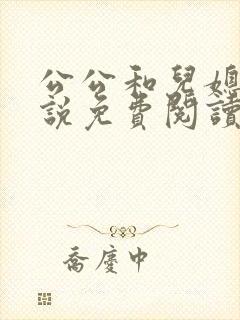 公公和兒媳
說免費閱讀
喬慶中